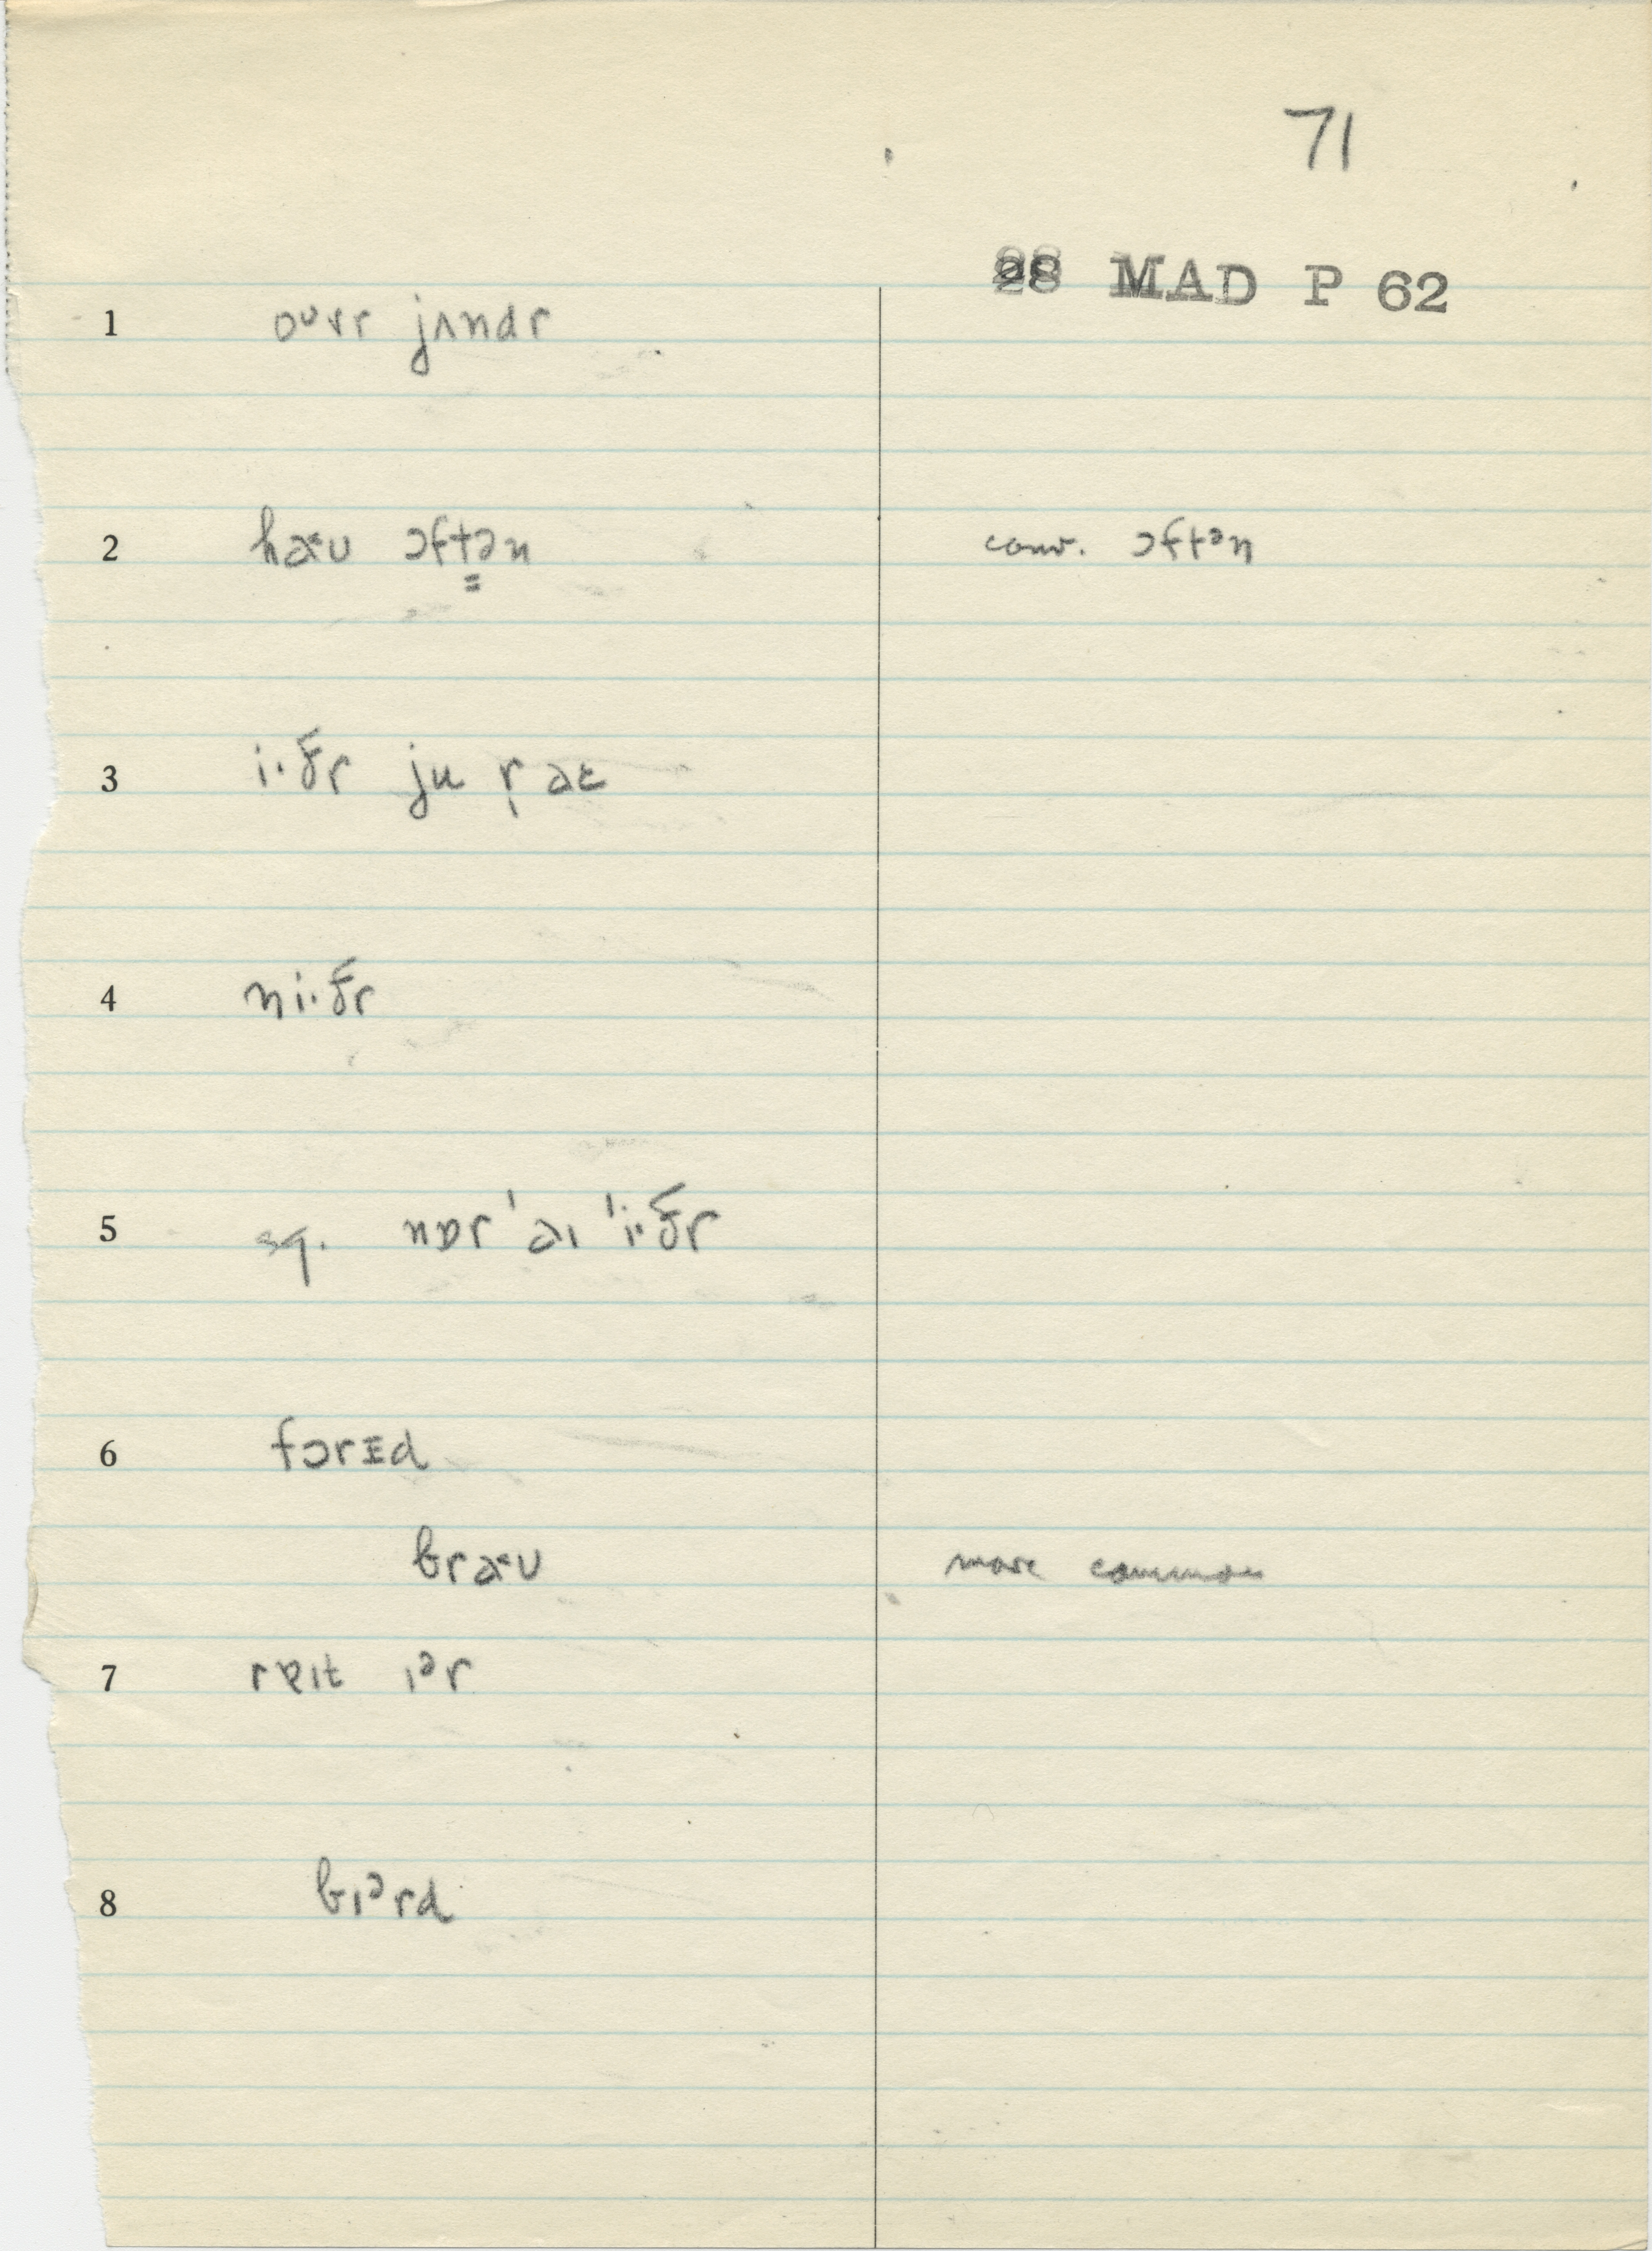 71
28 MAD P 62
1 oᶷvr jʌndr
2 haᵋu ɔftən conv. ɔftᵊn
3 i·ðr ju r̩ aɛ
4 ni·ðr
5 sq. nɒr ˈaɪ ˈi·ðr
6 fɔrɪd
braᵋu more common
7 rɐɪt ɪᵊr
8 bɪᵊrd